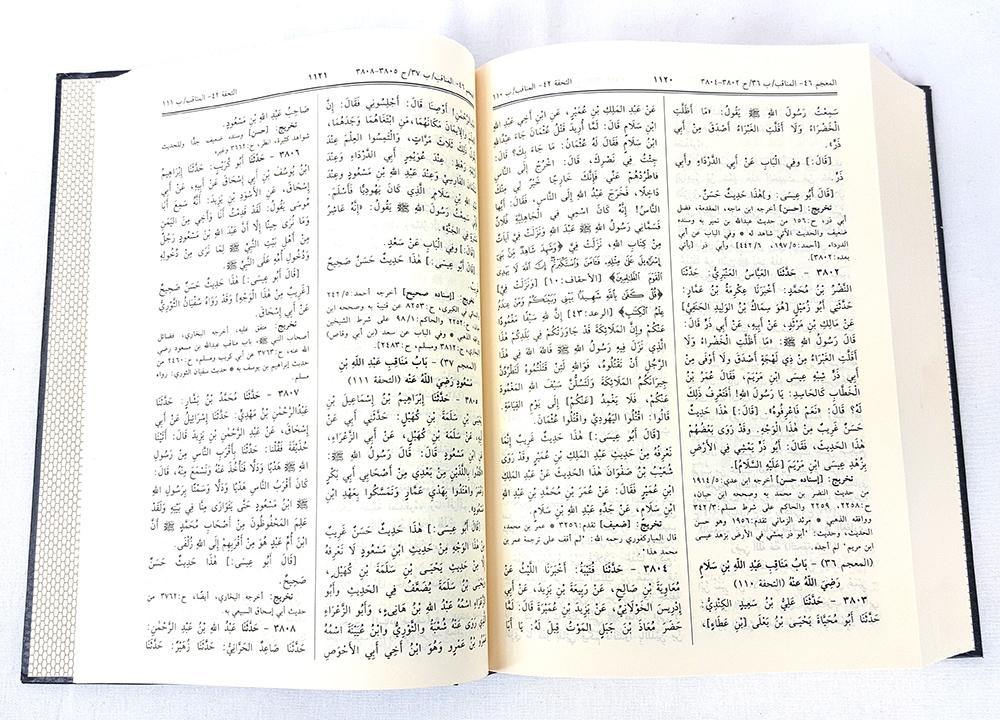 المعجم ٤٦- المناقب/ ب ٣٦/ح ٣٨٠٢-٣٨٠٤
١١٢٠
التحفة ٤٢- المناقب/ ب ١١٠
سَمِعْتُ رَسُولَ اللهِ ﷺ يَقُولُ: «مَا أَظَلَّتِ
الْخَضْرَاءُ وَلَا أَقَلَّتِ الْغَبْرَاءُ أَصْدَقَ مِنْ أَبِي
ذَرٍّ».
[قَالَ:] وَفِي الْبَابِ عَنْ أَبِي الدَّرْدَاءِ وَأَبِي
ذَرٍّ.
[قَالَ أَبُو عِيسَى: وَ]هَذَا حَدِيثٌ حَسَنٌ.
تخريج: [حسن] أخرجه ابن ماجه، المقدمة، فضل
أبي ذر، ح:١٥٦ من حديث عبدالله بن نمير به وسنده
ضعيف والحديث الآتي شاهد له * وفي الباب عن أبي
الدرداء [أحمد:٥/ ١٩٧، ٦/ ٤٤٢] وأبي ذر [يأتي
بعده:٣٨٠٢].
٣٨٠٢ - حَدَّثَنَا الْعَبَّاسُ الْعَنْبَرِيُّ: حَدَّثَنَا
النَّضْرُ بْنُ مُحَمَّدٍ: أَخْبَرَنَا عِكْرِمَةُ بْنُ عَمَّارٍ:
حَدَّثَنِي أَبُو زُمَيْلٍ [هُوَ سِمَاكُ بْنُ الْوَلِيدِ الْحَنَفِيُّ]
عَنْ مَالِكِ بْنِ مَرْثَدٍ، عَنْ أَبِيهِ، عَنْ أَبِي ذَرٍّ قَالَ:
قَالَ رَسُولُ اللهِ ﷺ: «مَا أَظَلَّتِ الْخَضْرَاءُ وَلَا
أَقَلَّتِ الْغَبْرَاءُ مِنْ ذِي لَهْجَةٍ أَصْدَقَ وَلَا أَوْفَى مِنْ
أَبِي ذَرٍّ شِبْهِ عِيسَى ابْنِ مَرْيَمَ، فَقَالَ عُمَرُ بْنُ
الْخَطَّابِ كَالْحَاسِدِ: يَا رَسُولَ اللهِ! أَفَتَعْرِفُ ذَلِكَ
لَهُ؟ قَالَ: «نَعَمْ فَاعْرِفُوهُ». [قَالَ:] هَذَا حَدِيثٌ
حَسَنٌ غَرِيبٌ مِنْ هَذَا الْوَجْهِ. وَقَدْ رَوَى بَعْضُهُمْ
هَذَا الْحَدِيثَ، فَقَالَ: أَبُو ذَرٍّ يَمْشِي فِي الْأَرْضِ
بِزُهْدِ عِيسَى ابْنِ مَرْيَمَ [عَلَيْهِ السَّلَامُ].
تخريج: [إسناده حسن] أخرجه ابن عدي:٥/ ١٩١٤
من حديث النضر بن محمد به وصححه ابن حبان،
ح:٢٢٥٨، ٢٢٥٩ والحاكم على شرط مسلم:٣/ ٣٤٢
ووافقه الذهبي * مرثد الزماني تقدم:١٩٥٦ وهو حسن
الحديث، وحديث: "أبو ذر يمشي في الأرض بزهد عيسى
ابن مريم" لم أجده.
(المعجم ٣٦) - بَابُ مَنَاقِبِ عَبْدِ اللهِ بْنِ سَلَامٍ
رَضِيَ اللهُ عَنْهُ (التحفة ١١٠)
٣٨٠٣ - حَدَّثَنَا عَلِيُّ بْنُ سَعِيدٍ الْكِنْدِيُّ:
حَدَّثَنَا أَبُو مُحَيَّاةَ يَحْيَى بْنُ يَعْلَى [بْنِ عَطَاءٍ]،
عَنْ عَبْدِ الْمَلِكِ بْنِ عُمَيْرٍ، عَنِ ابْنِ أَخِي عَبْدِ اللهِ
ابْنِ سَلَامٍ قَالَ: لَمَّا أُرِيدَ قَتْلُ عُثْمَانَ جَاءَ عَبْدُ اللهِ
ابْنُ سَلَامٍ فَقَالَ لَهُ عُثْمَانُ: مَا جَاءَ بِكَ؟ قَالَ:
جِئْتُ فِي نَصْرِكَ، قَالَ: اخْرُجْ إِلَى النَّاسِ
فَاطْرُدْهُمْ عَنِّي فَإِنَّكَ خَارِجًا خَيْرٌ لِي مِنْكَ
دَاخِلًا، فَخَرَجَ عَبْدُ اللهِ إِلَى النَّاسِ، فَقَالَ: أَيُّهَا
النَّاسُ! إِنَّهُ كَانَ اسْمِي فِي الْجَاهِلِيَّةِ فُلَانٌ
فَسَمَّانِي رَسُولُ اللهِ ﷺ عَبْدَ اللهِ وَنَزَلَتْ فِيَّ آيَاتٌ
مِنْ كِتَابِ اللهِ، نَزَلَتْ فِيَّ ﴿وَشَهِدَ شَاهِدٌ مِنْ بَنِي
إِسْرَائِيلَ عَلَى مِثْلِهِ فَآمَنَ وَاسْتَكْبَرْتُمْ إِنَّ اللهَ لَا يَهْدِي
الْقَوْمَ الظَّالِمِينَ﴾ [الأحقاف:١٠] [وَنَزَلَتْ فِيَّ]
﴿قُلْ كَفَى بِاللهِ شَهِيدًا بَيْنِي وَبَيْنَكُمْ وَمَنْ عِنْدَهُ
عِلْمُ الْكِتَابِ﴾ [الرعد:٤٣] إِنَّ لِلهِ سَيْفًا مَغْمُودًا
عَنْكُمْ وَإِنَّ الْمَلَائِكَةَ قَدْ جَاوَرَتْكُمْ فِي بَلَدِكُمْ هَذَا
الَّذِي نَزَلَ فِيهِ رَسُولُ اللهِ ﷺ فَاللهَ اللهَ فِي هَذَا
الرَّجُلِ أَنْ تَقْتُلُوهُ، فَوَاللهِ لَئِنْ قَتَلْتُمُوهُ لَتَطْرُدُنَّ
جِيرَانَكُمُ الْمَلَائِكَةَ وَلَتَسُلُّنَّ سَيْفَ اللهِ الْمَغْمُودَ
عَنْكُمْ، فَلَا يُغْمَدُ [عَنْكُمْ] إِلَى يَوْمِ الْقِيَامَةِ.
قَالُوا: اقْتُلُوا الْيَهُودِيَّ وَاقْتُلُوا عُثْمَانَ.
[قَالَ أَبُو عِيسَى:] هَذَا حَدِيثٌ غَرِيبٌ إِنَّمَا
نَعْرِفُهُ مِنْ حَدِيثِ عَبْدِ الْمَلِكِ بْنِ عُمَيْرٍ. وَقَدْ رَوَى
شُعَيْبُ بْنُ صَفْوَانَ هَذَا الْحَدِيثَ عَنْ عَبْدِ الْمَلِكِ
ابْنِ عُمَيْرٍ فَقَالَ: عَنْ عُمَرَ بْنِ مُحَمَّدِ بْنِ عَبْدِ اللهِ
ابْنِ سَلَامٍ، عَنْ جَدِّهِ عَبْدِ اللهِ بْنِ سَلَامٍ.
تخريج: [ضعيف] تقدم:٣٢٥٦ * عمر بن محمد،
قال المباركفوري رحمه الله: "لم أقف على ترجمة عمر بن
محمد هذا".
٣٨٠٤ - حَدَّثَنَا قُتَيْبَةُ: أَخْبَرَنَا اللَّيْثُ عَنْ
مُعَاوِيَةَ بْنِ صَالِحٍ، عَنْ رَبِيعَةَ بْنِ يَزِيدَ، عَنْ أَبِي
إِدْرِيسَ الْخَوْلَانِيِّ، عَنْ يَزِيدَ بْنِ عُمَيْرَةَ قَالَ: لَمَّا
حَضَرَ مُعَاذَ بْنَ جَبَلٍ الْمَوْتُ قِيلَ لَهُ: يَا أَبَا
٤٦- المناقب/ ب ٣٧/ح ٣٨٠٥-٣٨٠٨
١١٢١
التحفة ٤٢- المناقب/ ب ١١١
أَوْصِنَا قَالَ: أَجْلِسُونِي فَقَالَ: إِنَّ
وَالْإِيمَانَ مَكَانَهُمَا، مَنِ ابْتَغَاهُمَا وَجَدَهُمَا،
ذَلِكَ ثَلَاثَ مَرَّاتٍ، وَالْتَمِسُوا الْعِلْمَ عِنْدَ
رَهْطٍ: عِنْدَ عُوَيْمِرٍ أَبِي الدَّرْدَاءِ وَعِنْدَ
الْفَارِسِيِّ وَعِنْدَ عَبْدِ اللهِ بْنِ مَسْعُودٍ وَعِنْدَ
بْنِ سَلَامٍ الَّذِي كَانَ يَهُودِيًّا فَأَسْلَمَ،
سَمِعْتُ رَسُولَ اللهِ ﷺ يَقُولُ: «إِنَّهُ عَاشِرُ
فِي الْجَنَّةِ».
[قَالَ:] وَفِي الْبَابِ عَنْ سَعْدٍ.
[قَالَ أَبُو عِيسَى:] هَذَا حَدِيثٌ حَسَنٌ صَحِيحٌ
تخريج: [إسناده صحيح] أخرجه أحمد:٥/ ٢٤٢
في الكبرى، ح:٨٢٥٣ عن قتيبة به وصححه ابن
ح:٢٢٥٢ والحاكم:١/ ٩٨ على شرط الشيخين
الذهبي * وفي الباب عن سعد [بن أبي وقاص]
ح:٣٨١٢ ومسلم، ح:٢٤٨٣].
(٣٧) - بَابُ مَنَاقِبِ عَبْدِ اللهِ بْنِ
مَسْعُودٍ رَضِيَ اللهُ عَنْهُ (التحفة ١١١)
٣٨٠٥ - حَدَّثَنَا إِبْرَاهِيمُ بْنُ إِسْمَاعِيلَ بْنِ
سَلَمَةَ بْنِ كُهَيْلٍ: حَدَّثَنِي أَبِي عَنْ
عَنْ سَلَمَةَ بْنِ كُهَيْلٍ، عَنْ أَبِي الزَّعْرَاءِ،
مَسْعُودٍ قَالَ: قَالَ رَسُولُ اللهِ ﷺ:
بِاللَّذَيْنِ مِنْ بَعْدِي مِنْ أَصْحَابِي أَبِي بَكْرٍ
وَاهْتَدُوا بِهَدْيِ عَمَّارٍ وَتَمَسَّكُوا بِعَهْدِ ابْنِ
[قَالَ أَبُو عِيسَى:] هَذَا حَدِيثٌ حَسَنٌ غَرِيبٌ
هَذَا الْوَجْهِ مِنْ حَدِيثِ ابْنِ مَسْعُودٍ لَا نَعْرِفُهُ
مِنْ حَدِيثِ يَحْيَى بْنِ سَلَمَةَ بْنِ كُهَيْلٍ،
بْنُ سَلَمَةَ يُضَعَّفُ فِي الْحَدِيثِ وَأَبُو
الزَّعْرَاءِ اسْمُهُ عَبْدُ اللهِ بْنُ هَانِيءٍ، وَأَبُو الزَّعْرَاءِ
الَّذِي رَوَى عَنْهُ شُعْبَةُ وَالثَّوْرِيُّ وَابْنُ عُيَيْنَةَ اسْمُهُ
عَمْرُو بْنُ عَمْرٍو وَهُوَ ابْنُ أَخِي أَبِي الْأَحْوَصِ
صَاحِبُ عَبْدِ اللهِ بْنِ مَسْعُودٍ.
تخريج: [حسن] وسنده ضعيف جدًّا وللحديث
شواهد كثيرة، انظر، ح:٣٦٦٢ وغيره.
٣٨٠٦ - حَدَّثَنَا أَبُو كُرَيْبٍ: حَدَّثَنَا إِبْرَاهِيمُ
ابْنُ يُوسُفَ بْنِ أَبِي إِسْحَاقَ عَنْ أَبِيهِ، عَنْ أَبِي
إِسْحَاقَ، عَنِ الْأَسْوَدِ بْنِ يَزِيدَ: أَنَّهُ سَمِعَ أَبَا
مُوسَى يَقُولُ: لَقَدْ قَدِمْتُ أَنَا وَأَخِي مِنَ الْيَمَنِ
وَمَا نُرَى حِينًا إِلَّا أَنَّ عَبْدَ اللهِ بْنَ مَسْعُودٍ رَجُلٌ
مِنْ أَهْلِ بَيْتِ النَّبِيِّ ﷺ لِمَا نَرَى مِنْ دُخُولِهِ
وَدُخُولِ أُمِّهِ عَلَى النَّبِيِّ ﷺ.
[قَالَ أَبُو عِيسَى:] هَذَا حَدِيثٌ حَسَنٌ صَحِيحٌ
[غَرِيبٌ مِنْ هَذَا الْوَجْهِ] وَقَدْ رَوَاهُ سُفْيَانُ الثَّوْرِيُّ
عَنْ أَبِي إِسْحَاقَ.
تخريج: متفق عليه، أخرجه البخاري، فضائل
أصحاب النبي ﷺ، باب مناقب عبدالله بن مسعود رضي
الله عنه، ح:٣٧٦٣ عن أبي كريب ومسلم، ح:٢٤٦٠ من
حديث إبراهيم بن يوسف به * حديث سفيان الثوري: رواه
مسلم.
٣٨٠٧ - حَدَّثَنَا مُحَمَّدُ بْنُ بَشَّارٍ: حَدَّثَنَا
عَبْدُالرَّحْمَنِ بْنُ مَهْدِيٍّ: حَدَّثَنَا إِسْرَائِيلُ عَنْ أَبِي
إِسْحَاقَ، عَنْ عَبْدِ الرَّحْمَنِ بْنِ يَزِيدَ قَالَ: أَتَيْنَا
حُذَيْفَةَ فَقُلْنَا: حَدِّثْنَا بِأَقْرَبِ النَّاسِ مِنْ رَسُولِ
اللهِ ﷺ هَدْيًا وَدَلًّا فَنَأْخُذَ عَنْهُ وَنَسْمَعَ مِنْهُ، قَالَ:
كَانَ أَقْرَبُ النَّاسِ هَدْيًا وَدَلًّا وَسَمْتًا بِرَسُولِ اللهِ
ﷺ ابْنَ مَسْعُودٍ حَتَّى يَتَوَارَى مِنَّا فِي بَيْتِهِ وَلَقَدْ
عَلِمَ الْمَحْفُوظُونَ مِنْ أَصْحَابِ مُحَمَّدٍ ﷺ أَنَّ
ابْنَ أُمِّ عَبْدٍ هُوَ مِنْ أَقْرَبِهِمْ إِلَى اللهِ زُلْفَى.
[قَالَ أَبُو عِيسَى:] هَذَا حَدِيثٌ حَسَنٌ
صَحِيحٌ.
تخريج: أخرجه البخاري، أيضًا، ح:٣٧٦٢ من
حديث أبي إسحاق السبيعي به.
٣٨٠٨ - حَدَّثَنَا عَبْدُ اللهِ بْنُ عَبْدِ الرَّحْمَنِ:
حَدَّثَنَا صَاعِدٌ الْحَرَّانِيُّ: حَدَّثَنَا زُهَيْرٌ: حَدَّثَنَا